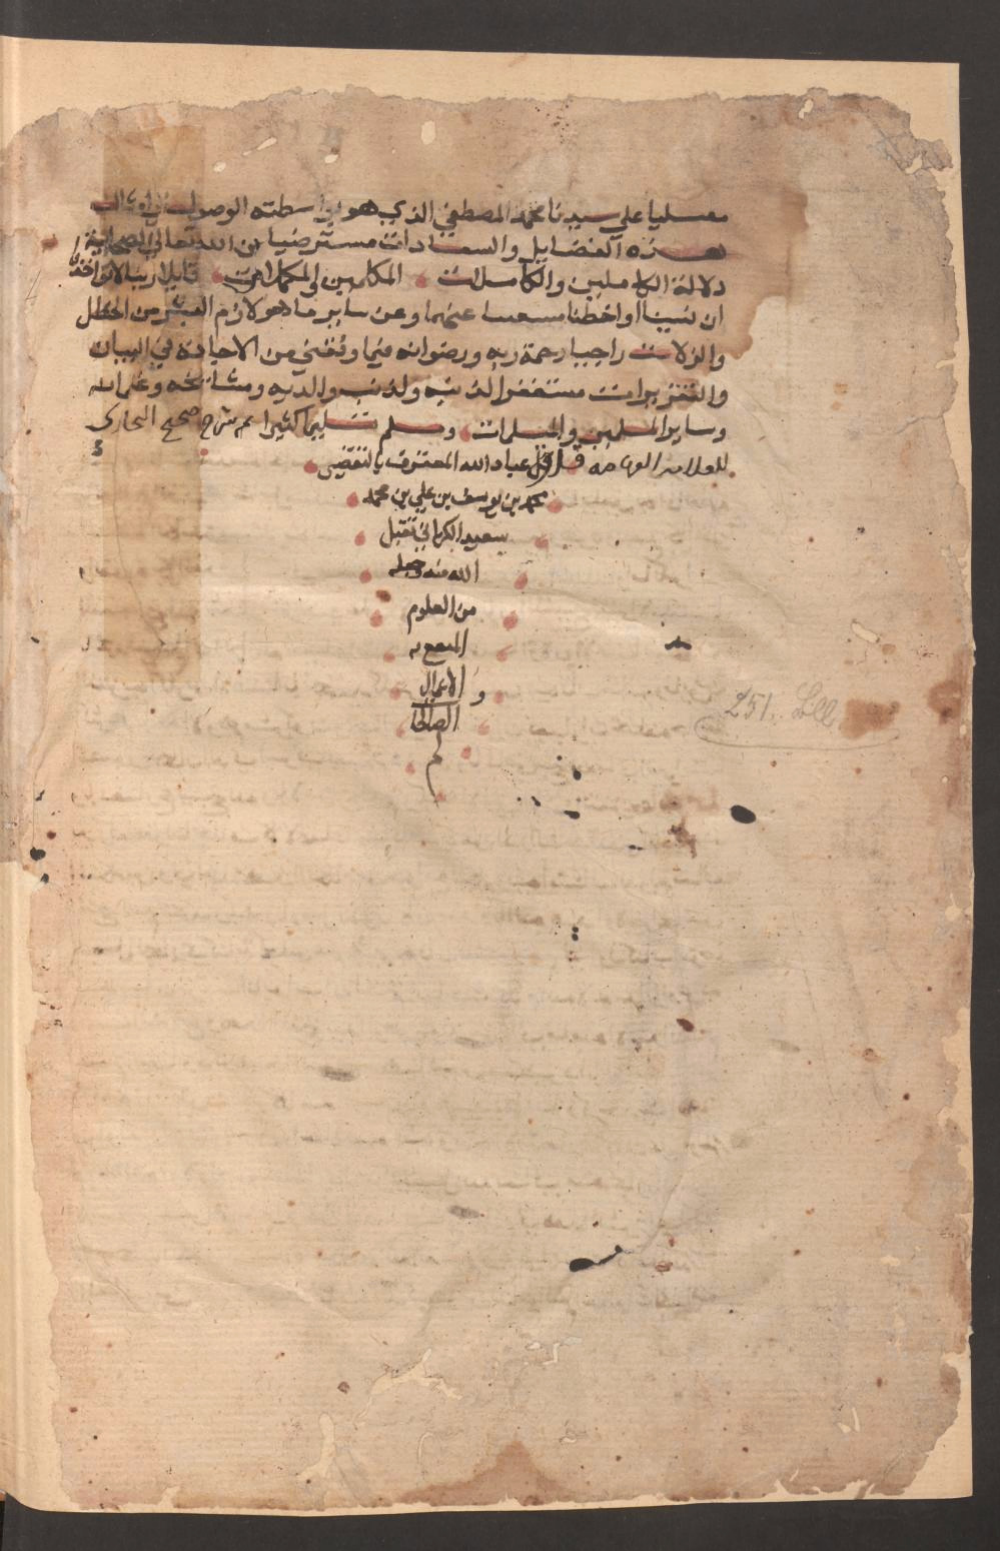 مصليا على سيدنا محمد المصطفى الذي هو بواسطته الوصول الى امثال
هذه الفضايل والسعادات مسترضيا من الله تعالى
دلالة الكاملين والكاملات قايلا ربنا لا تواخذنا
ان نسينا او اخطأنا عنهما وعن ساير ما هو لازم البشر من الخطل
والزلات راجيا رحمة ربه ورضوانه في البيان
والتقريرات مستغفرا لذنبه ولذنب والديه ومشايخه
وساير المسلمين والمسلمات وسلم تسليما كثيرا تم شرح صحيح البخاري
للعلامة اقل عباد الله المعترف بالتقصير
محمد بن يوسف بن علي بن محمد
سعيد الكرماني تقبل
الله منه وجعله
من العلوم
المنتفع به
و الاعمال
الصالحات
تم
251.